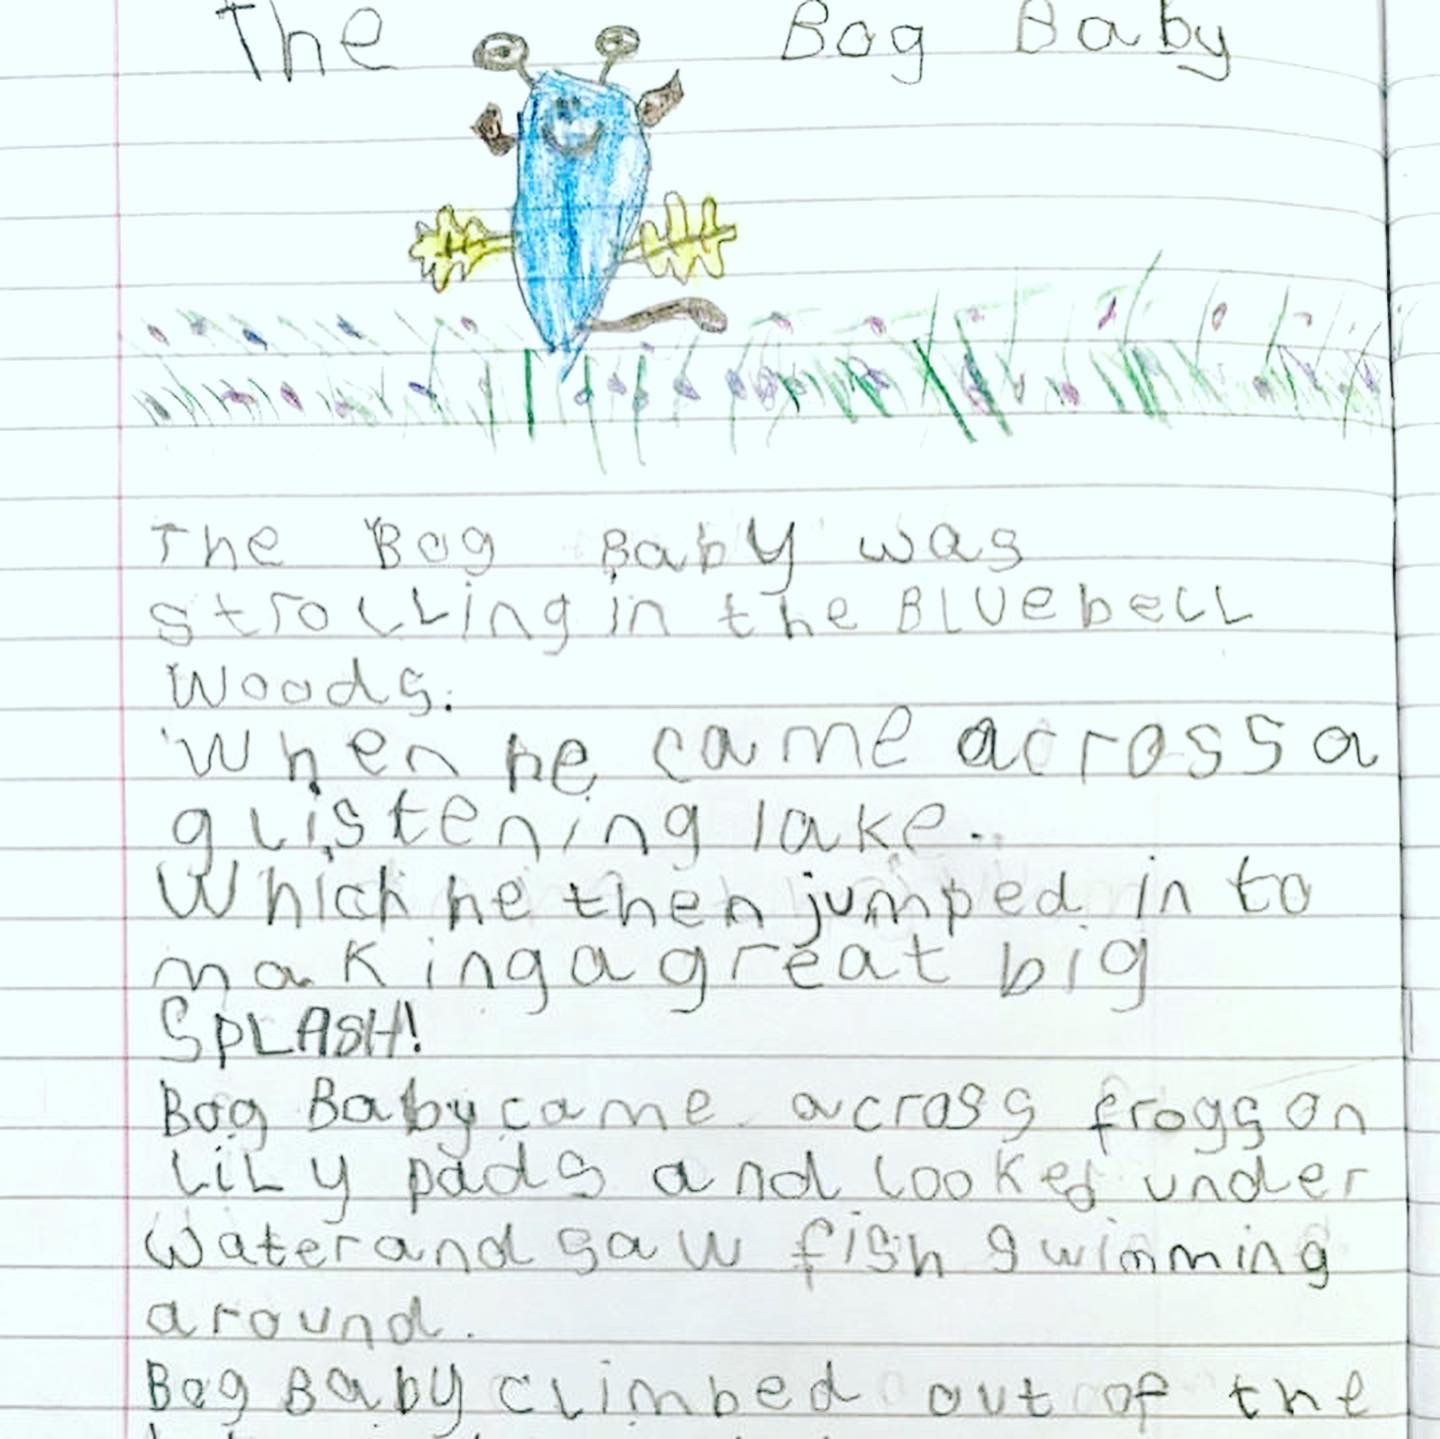 The Bog Baby
The Bog Baby was
strolling in the Bluebell
Woods.
When he came across a
glistening lake..
Which he then jumped in to
making a great big
SPLASH!
Bog Baby came across frogs on
Lily pads and looked under
water and saw fish swimming
around.
Bog Baby climbed out of the